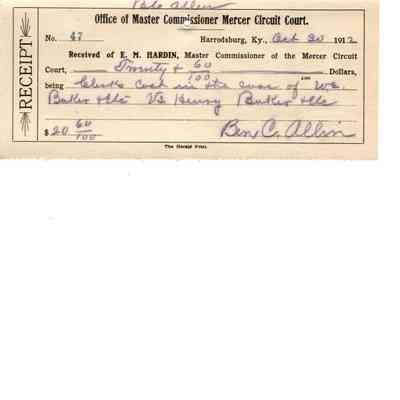 Pete Allin
Office of Master Commissioner Mercer Circuit Court.
RECEIPT
No. 47 Harrodsburg, Ky., Oct 20 1912
Received of E. M. HARDIN, Master Commissioner of the Mercer Circuit
Court, Twenty & 60/100 Dollars,
being Clerks cost in the case of We.
Baker & etc Vs Henry Baker & etc
$20 60/100 Ben C. Allin
The Herald Print.